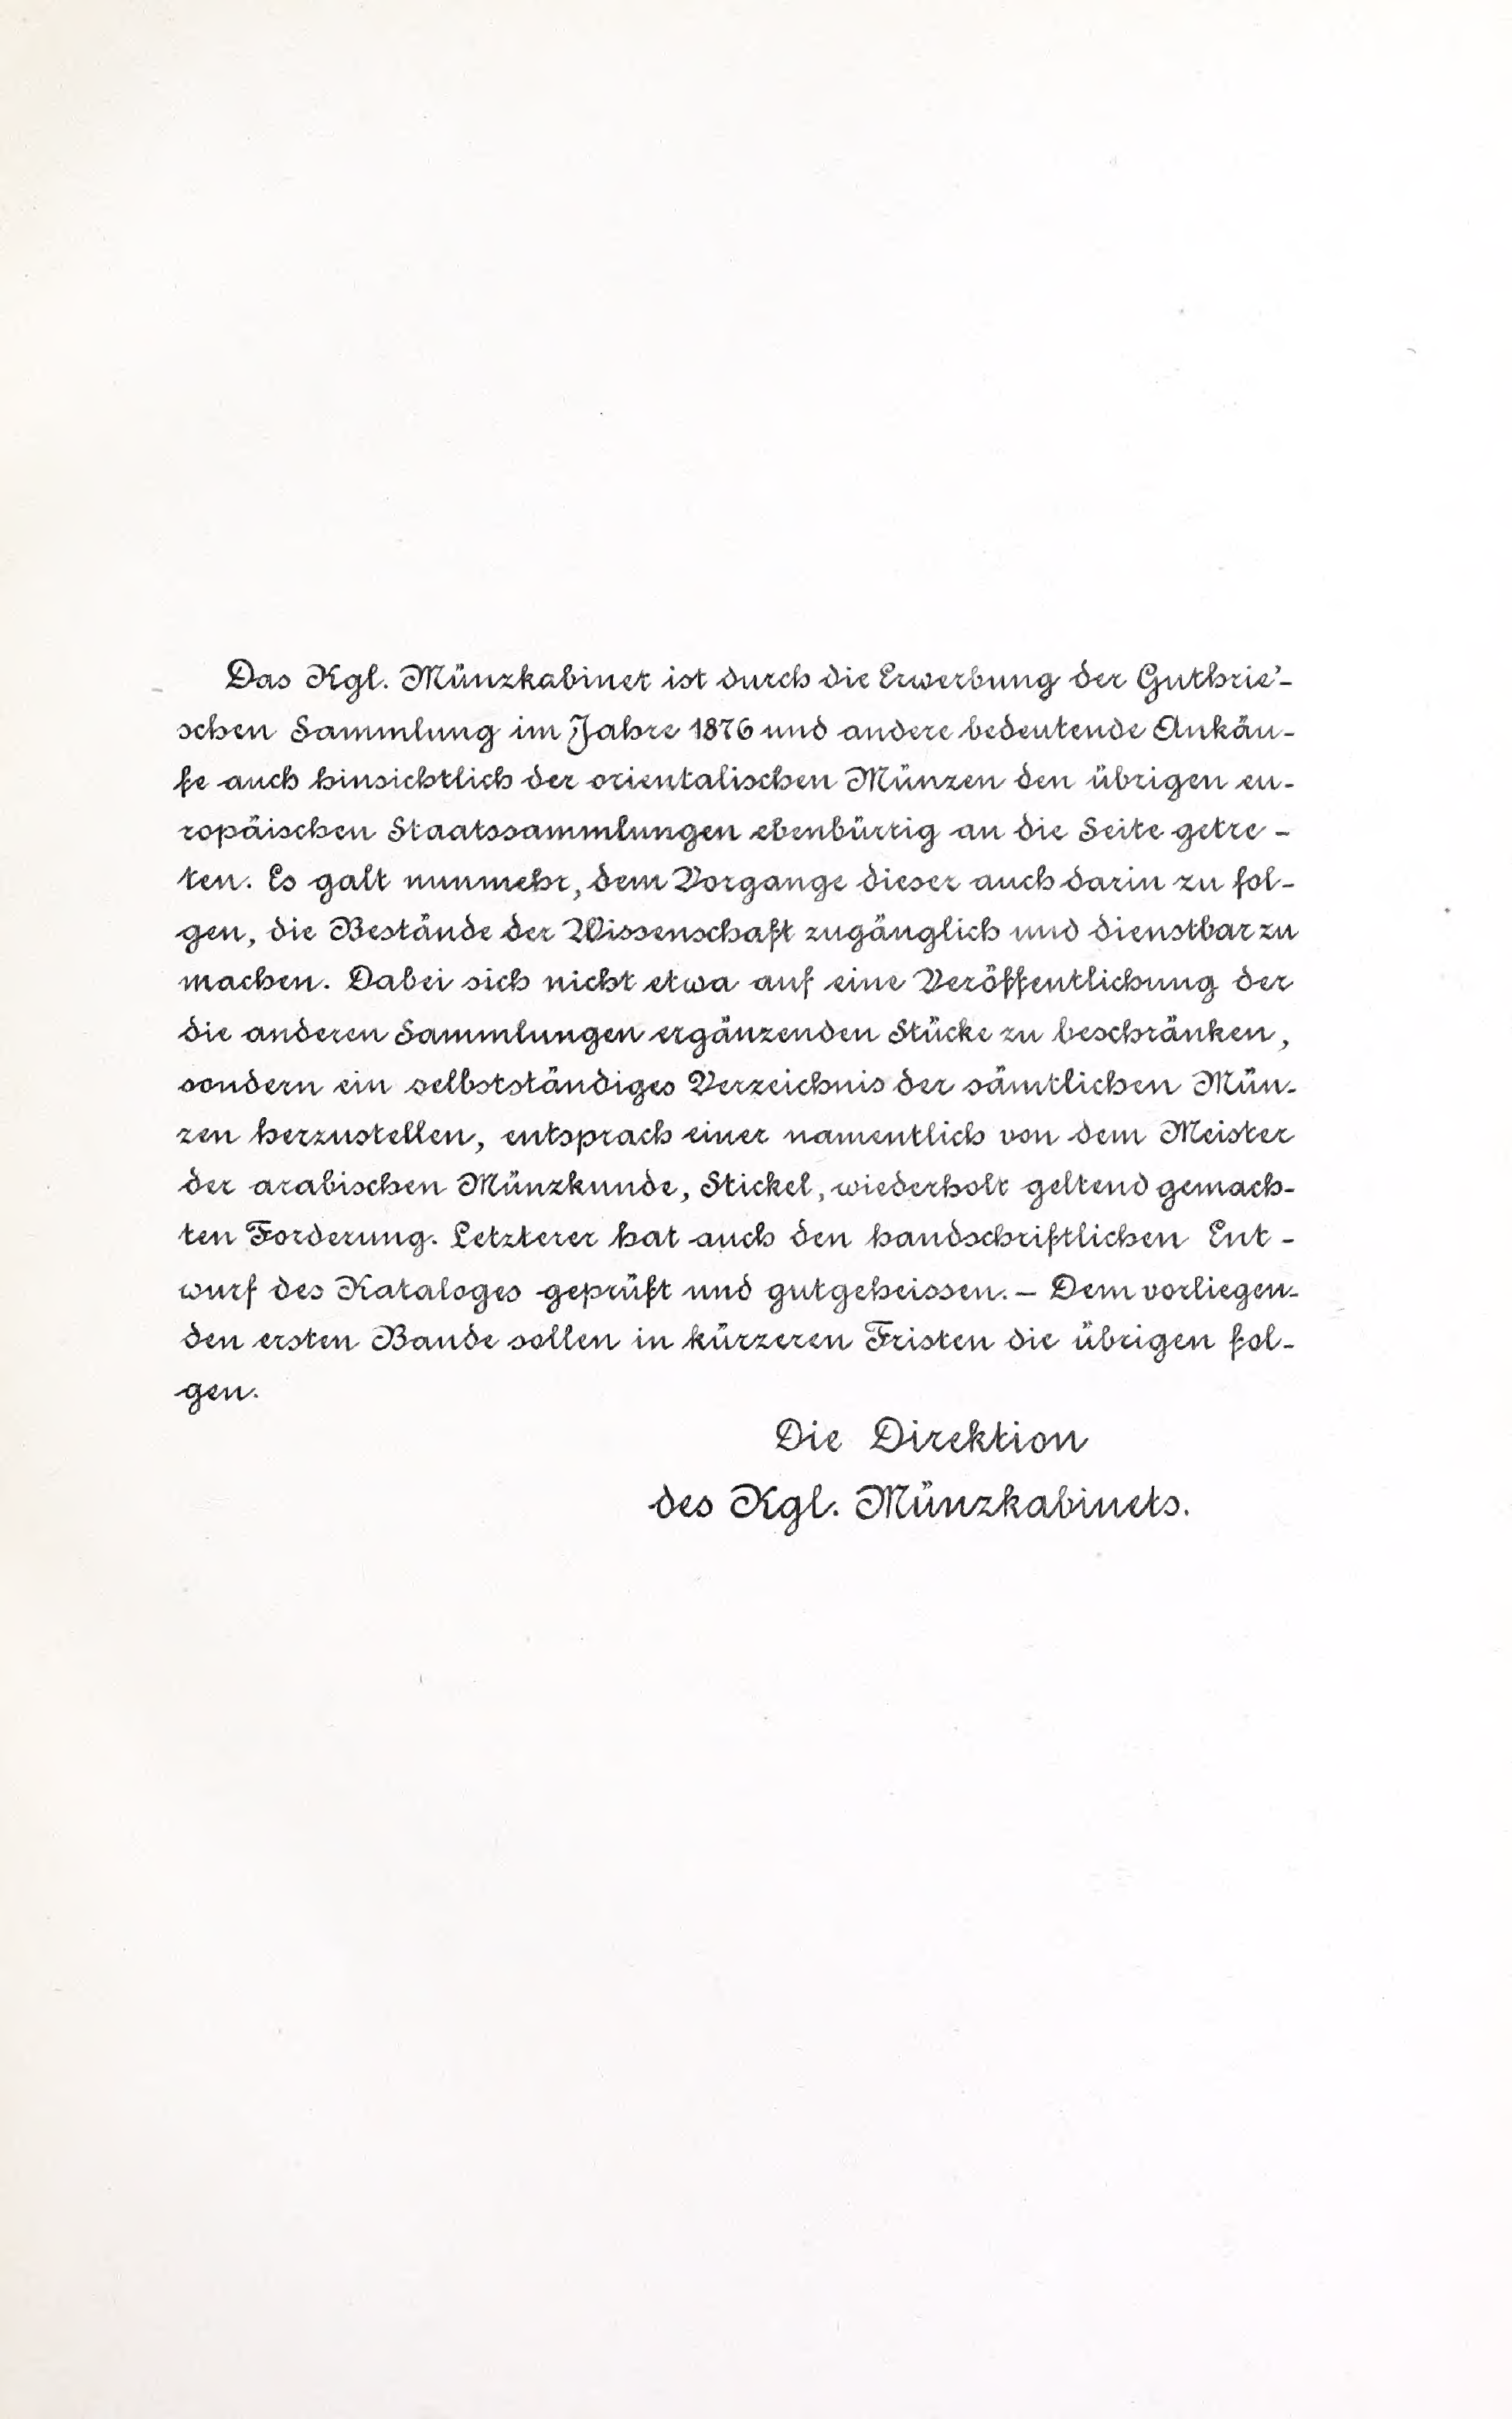 Das Kgl. Münzkabinet ist durch die Erwerbung der Guthrie'-
schen Sammlung im Jahre 1876 und andere bedeutende Ankäu-
fe auch hinsichtlich der orientalischen Münzen den übrigen eu-
ropäischen Staatssammlungen ebenbürtig an die Seite getre-
ten. Es galt nunmehr, dem Vorgange dieser auch darin zu fol-
gen, die Bestände der Wissenschaft zugänglich und dienstbar zu
machen. Dabei sich nicht etwa auf eine Veröffentlichung der
die anderen Sammlungen ergänzenden Stücke zu beschränken,
sondern ein selbstständiges Verzeichnis der sämtlichen Mün-
zen herzustellen, entsprach einer namentlich von dem Meister
der arabischen Münzkunde, Stickel, wiederholt geltend gemach-
ten Forderung. Letzterer hat auch den handschriftlichen Ent-
wurf des Kataloges geprüft und gutgeheissen. — Dem vorliegen-
den ersten Bande sollen in kürzeren Fristen die übrigen fol-
gen.
Die Direktion
des Kgl. Münzkabinets.